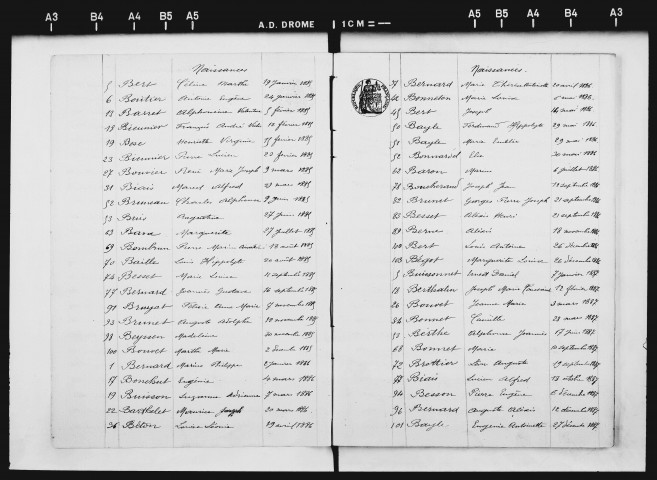 A3 B4 A4 B5 A5 A.D. DROME 1CM A5 B5 A4 B4 A3
Naissances
5 Bert Céline Marthe 19 Janvier 1885
6 Boutier Antoine Eugène 24 janvier 1885
13 Barret Alphonsine 5 février 1885
18 François André 10 février 1885
19 Bose Henriette Virginie 15 février 1885
23 Pierre Lucien 20 février 1885
27 Bouvier René Marie Joseph 3 mars 1885
31 Biais Marcel Alfred 27 mars 1885
52 Bruneau Charles Alphonse 9 juin 1885
53 Bris Augustine 27 juin 1885
63 Marguerite 27 juillet 1885
69 Pierre Marie 18 août 1885
70 Baille Louis Hippolyte 20 août 1885
74 Besset Marie Louise 11 septembre 1885
77 Bernard Joannès Gustave 16 septembre 1885
91 Anne Marie 9 novembre 1885
93 Brunet Auguste Adolphe 10 novembre 1885
98 Madeleine 20 novembre 1885
100 Bouvet Marthe Marie 2 décembre 1885
1 Bernard Marius Philippe 2 janvier 1886
17 Eugénie 4 mars 1886
19 Buisson Suzanne Adrienne 7 mars 1886
22 Barthelet Maurice Joseph 20 mars 1886
36 Béton Louise Léonie 29 avril 1886
Naissances.
Bernard Marie Antoinette 20 avril 1886
Bonneton Marie Louise mai 1886
45 Bert Joseph 16 mai 1886
50 Bayle Ferdinand Hippolyte 29 mai 1886
51 Bayle Marie Eulalie 29 mai 1886
52 Bonnardel Elie 30 mai 1886
62 Baron Marius 6 juillet 1886
78 Joseph Jean 12 septembre 1886
82 Brunet Georges Pierre Joseph 21 septembre 1886
83 Besset Henri 21 septembre 1886
89 Berne 18 novembre 1886
100 Bert Louis Antoine 26 décembre 1886
103 Marguerite Louise 26 décembre 1886
5 Buissonnet Ernest Daniel 7 janvier 1887
18 Berthalon Joseph Marie 12 février 1887
26 Bouvet Jeanne Marie 3 mars 1887
34 Bonnet Camille 28 mars 1887
53 Berthe Alphonse Joannès 17 juin 1887
68 Bonnet Marie 10 septembre 1887
72 Brottier Léon Auguste 19 septembre 1887
77 Biais Lucien Alfred 13 octobre 1887
94 Besson Pierre Eugène 6 décembre 1887
96 Bernard Auguste 12 décembre 1887
101 Bayle Eugénie Antoinette 27 décembre 1887